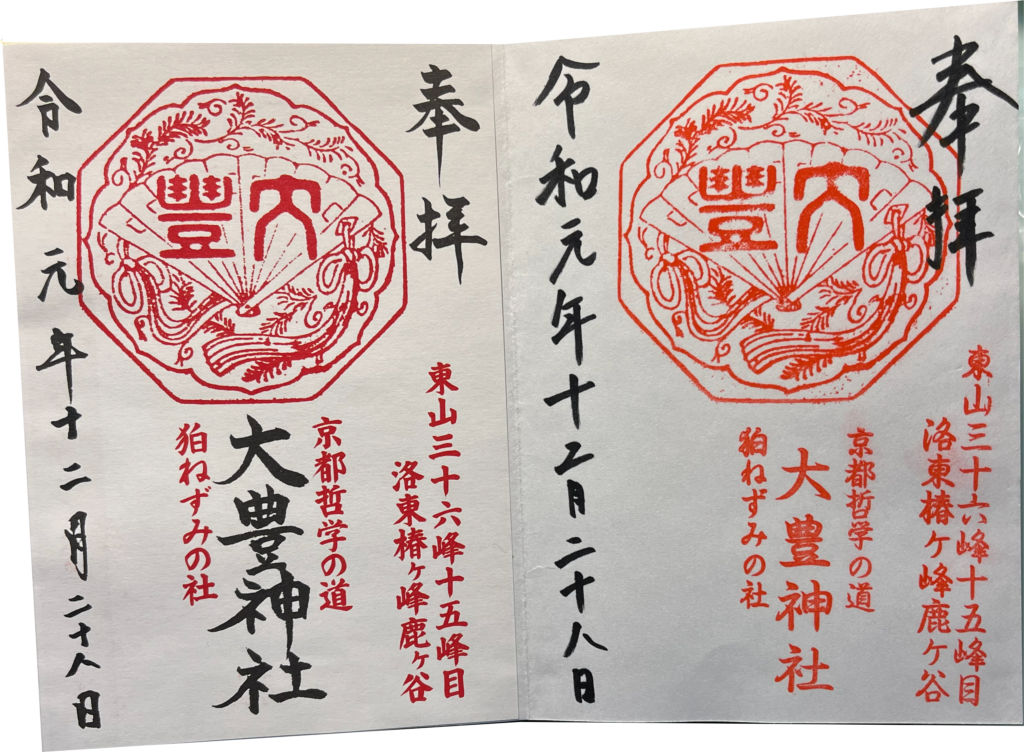 奉拝
東山三十六峰十五峰目
洛東椿ヶ峰鹿ヶ谷
大豊
京都哲学の道
大豊神社
狛ねずみの社
令和元年十二月二十八日
奉拝
東山三十六峰十五峰目
洛東椿ケ峰鹿ケ谷
大豐
京都哲学の道
大豊神社
狛ねずみの社
令和元年十二月二十八日